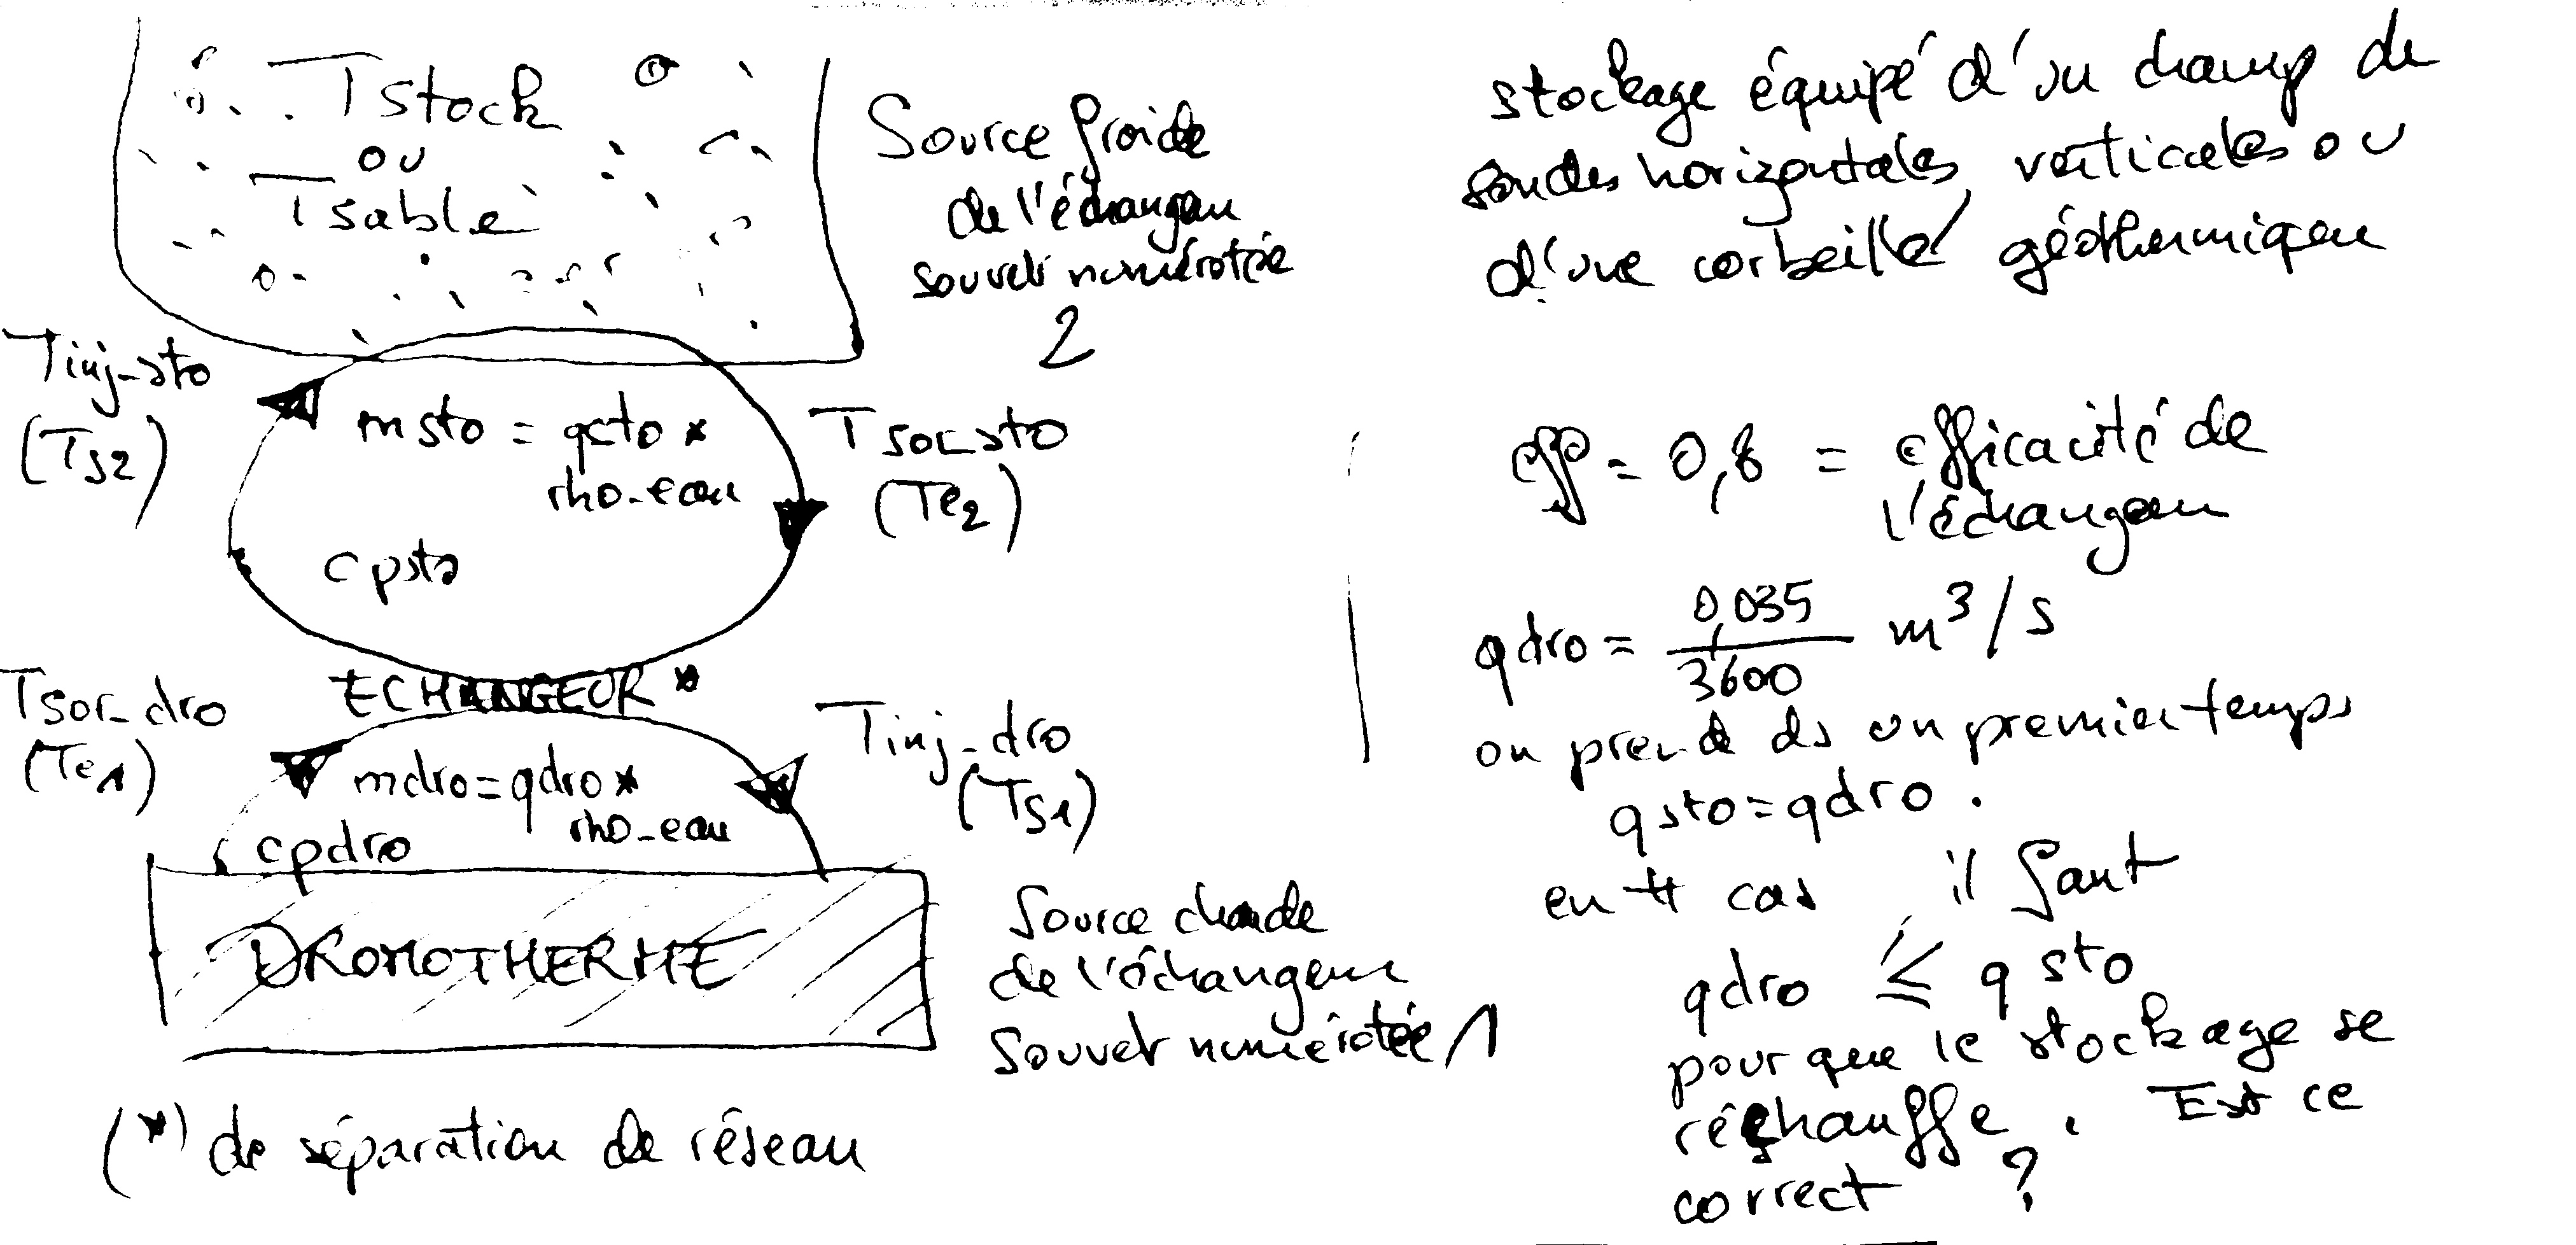 Tstock
ou
Tsable
Source froide
de l'échangeur
souvet numérotée
2
Tinj-sto
(Ts2)
msto = qsto *
rho-eau
cpsto
Tsor-sto
(Te2)
Tsor-dro
(Te1)
ECHANGEUR *
mdro = qdro *
rho-eau
cpdro
Tinj-dro
(Ts1)
DROMOTHERME
Source chaude
de l'échangeur
Souvet numérotée 1
(*) de séparation de réseau
stockage équipé d'un champ de
sondes horizontales, verticales ou
d'une corbeille géothermique
eff = 0,8 = efficacité de
l'échangeur
qdro = 0,035 / 3600 m³/s
on prend ds un premier temps
qsto = qdro.
en tt cas, il faut
qdro ≤ qsto
pour que le stockage se
réchauffe. Est ce
correct ?